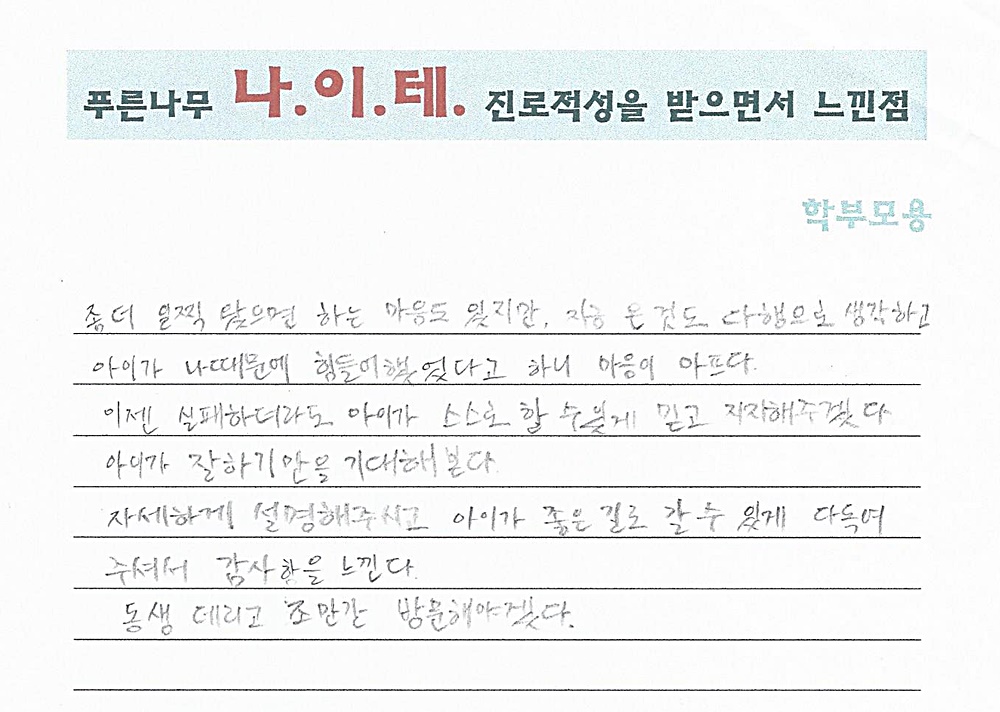 푸른나무 나.이.테. 진로적성을 받으면서 느낀점
학부모용
좀더 일찍 왔으면 하는 마음도 있지만, 지금 온것도 다행으로 생각하고
아이가 나때문에 힘들어했었다고 하니 마음이 아프다.
이젠 실패하더라도 아이가 스스로 할 수 있게 믿고 지지해주겠다
아이가 잘하기만을 기대해 본다.
자세하게 설명해주시고 아이가 좋은 길로 갈 수 있게 다독여
주셔서 감사함을 느낀다.
동생 데리고 조만간 방문해야겠다.